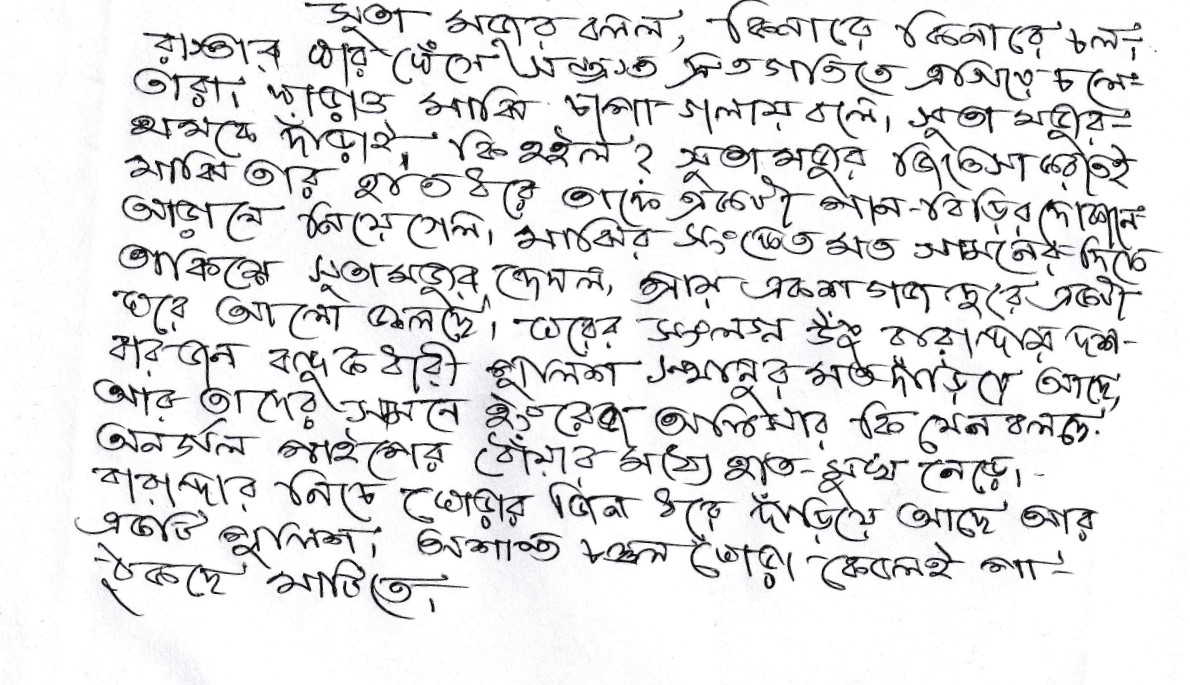 সুতা মজুর বলল, কিনারে কিনারে চল।
রাস্তার ধার ঘেঁষে সন্ত্রস্ত দ্রুতগতিতে এগিয়ে চলে
তারা। দাড়াও মাঝি চাপা গলায় বলে। সুতা মজুর-
থমকে দাঁড়াই, কি হইল? সুতামজুর জিগেসা করতেই
মাঝি তার হাত ধরে তাকে একটা পান-বিড়ির দোকানের
আড়ালে নিয়ে গেল। মাঝির সংকেত মত সামনের দিকে
তাকিয়ে সুতামজুর দেখল, প্রায় একশ গজ দূরে একটা
ঘরে আলো জ্বলছে। ঘরের সংলগ্ন উঁচু বারান্দায় দশ-
বারজন বন্দুকধারী পুলিশ স্থানুর মত দাঁড়িয়ে আছে,
আর তাদের সামনে ইংরেজ অফিসার কি যেন বলছে
অনর্গল পাইপের ধোঁয়ার মধ্যে হাত-মুখ নেড়ে।
বারান্দার নিচে ঘোড়ার জিন ধরে দাঁড়িয়ে আছে আর
একটি পুলিশ। অশান্ত চঞ্চল ঘোড়া কেবলই পা-
ঠুকছে মাটিতে।